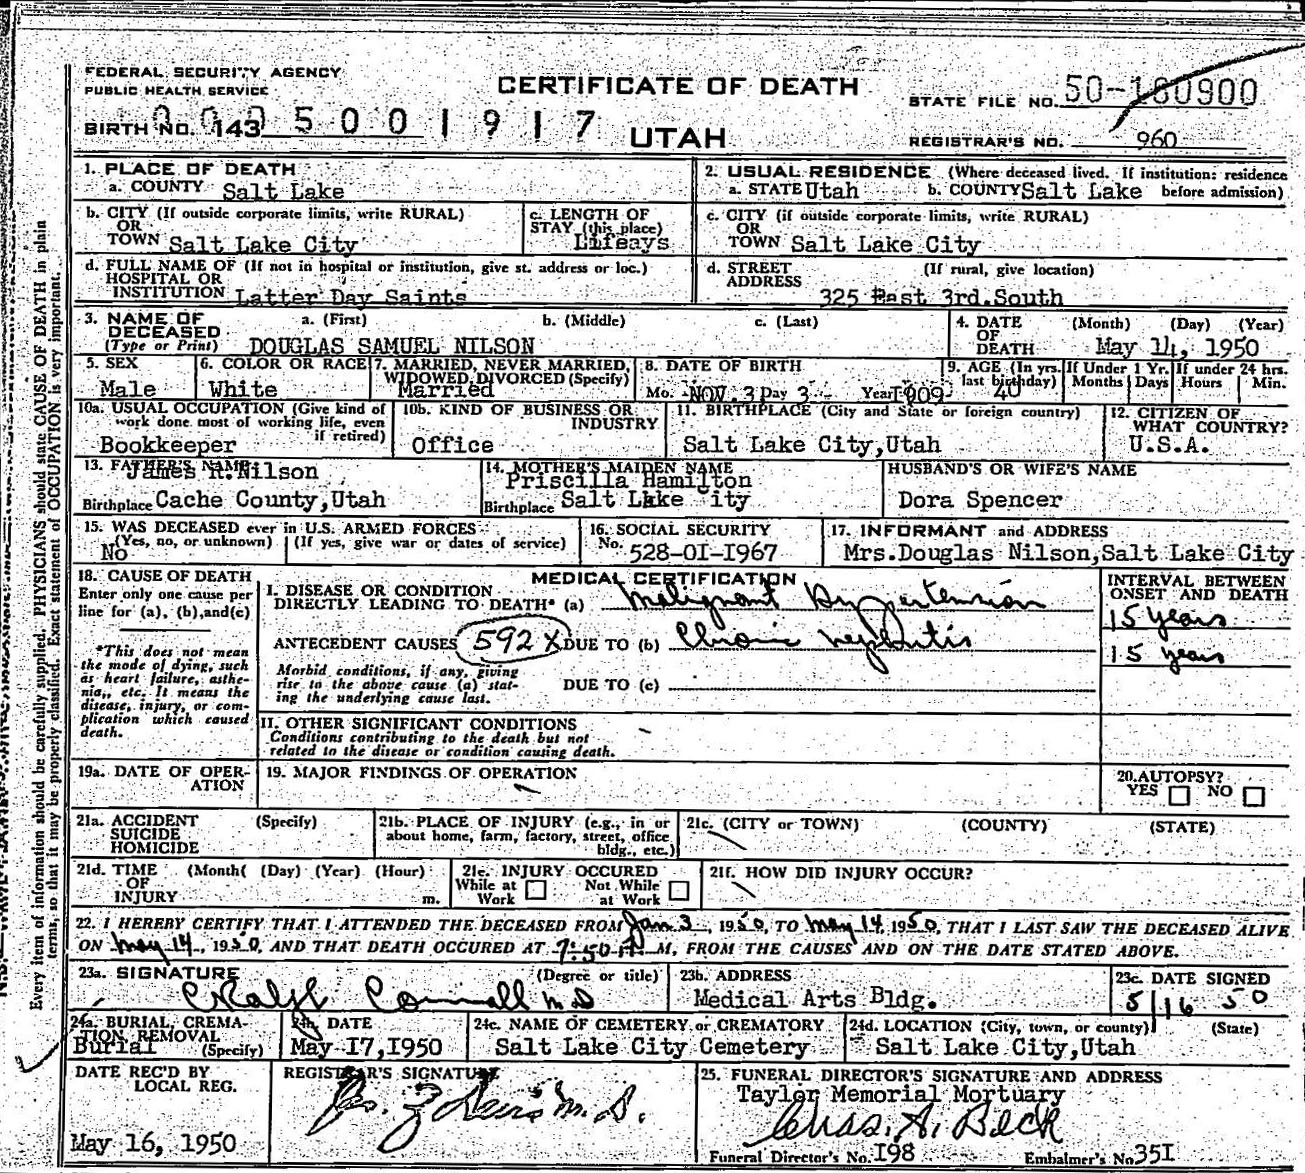 FEDERAL SECURITY AGENCY
PUBLIC HEALTH SERVICE
CERTIFICATE OF DEATH
STATE FILE NO. 50-180900
BIRTH NO. 143
0005001917
UTAH
REGISTRAR'S NO. 960
1. PLACE OF DEATH
a. COUNTY Salt Lake
2. USUAL RESIDENCE (Where deceased lived. If institution: residence before admission)
a. STATE Utah b. COUNTY Salt Lake
b. CITY (If outside corporate limits, write RURAL)
OR
TOWN Salt Lake City
c. LENGTH OF
STAY (this place)
c. CITY (if outside corporate limits, write RURAL)
OR
TOWN Salt Lake City
d. FULL NAME OF (If not in hospital or institution, give st. address or loc.)
HOSPITAL OR
INSTITUTION Latter Day Saints
d. STREET (If rural, give location)
ADDRESS
325 East 3rd.South
3. NAME OF DECEASED a. (First) b. (Middle) c. (Last)
(Type or Print) DOUGLAS SAMUEL NILSON
4. DATE OF DEATH (Month) (Day) (Year)
May 14, 1950
5. SEX
Male
6. COLOR OR RACE
White
7. MARRIED, NEVER MARRIED,
WIDOWED, DIVORCED (Specify)
Married
8. DATE OF BIRTH
Mo. NOV. 3 Day 3 Year 1909
9. AGE (In yrs. last birthday)
40
If Under 1 Yr.
Months Days
If under 24 hrs.
Hours Min.
10a. USUAL OCCUPATION (Give kind of
work done most of working life, even
if retired)
Bookkeeper
10b. KIND OF BUSINESS OR
INDUSTRY
Office
11. BIRTHPLACE (City and State or foreign country)
Salt Lake City,Utah
12. CITIZEN OF
WHAT COUNTRY?
U.S.A.
13. FATHER'S NAME
James R.Nilson
Birthplace Cache County,Utah
14. MOTHER'S MAIDEN NAME
Priscilla Hamilton
Birthplace Salt Lake ity
HUSBAND'S OR WIFE'S NAME
Dora Spencer
15. WAS DECEASED ever in U.S. ARMED FORCES
(Yes, no, or unknown) (If yes, give war or dates of service)
No
16. SOCIAL SECURITY
No. 528-0I-I967
17. INFORMANT and ADDRESS
Mrs.Douglas Nilson,Salt Lake City
18. CAUSE OF DEATH
Enter only one cause per
line for (a), (b),and(c)
*This does not mean
the mode of dying, such
as heart failure, asthe-
nia,, etc. It means the
disease, injury, or com-
plication which caused
death.
MEDICAL CERTIFICATION
I. DISEASE OR CONDITION
DIRECTLY LEADING TO DEATH* (a) Malignant Hypertension
ANTECEDENT CAUSES 592 X DUE TO (b) Chronic nephritis
Morbid conditions, if any, giving
rise to the above cause (a) stat-
ing the underlying cause last.
DUE TO (c)
INTERVAL BETWEEN
ONSET AND DEATH
15 years
15 years
II. OTHER SIGNIFICANT CONDITIONS
Conditions contributing to the death but not
related to the disease or condition causing death.
19a. DATE OF OPER-
ATION
19. MAJOR FINDINGS OF OPERATION
20.AUTOPSY?
YES NO
21a. ACCIDENT (Specify)
SUICIDE
HOMICIDE
21b. PLACE OF INJURY (e.g., in or
about home, farm, factory, street, office
bldg., etc.)
21c. (CITY or TOWN) (COUNTY) (STATE)
21d. TIME (Month( (Day) (Year) (Hour)
OF
INJURY m.
21e. INJURY OCCURED
While at Work Not While at Work
21f. HOW DID INJURY OCCUR?
22. I HEREBY CERTIFY THAT I ATTENDED THE DECEASED FROM Jan 3, 1950, TO May 14, 1950, THAT I LAST SAW THE DECEASED ALIVE
ON May 14, 1950, AND THAT DEATH OCCURED AT 7:50 A M, FROM THE CAUSES AND ON THE DATE STATED ABOVE.
23a. SIGNATURE (Degree or title)
MD
23b. ADDRESS
Medical Arts Bldg.
23c. DATE SIGNED
5/16 50
24a. BURIAL, CREMA-
TION REMOVAL (Specify)
Burial
24b. DATE
May I7,I950
24c. NAME OF CEMETERY or CREMATORY
Salt Lake City Cemetery
24d. LOCATION (City, town, or county) (State)
Salt Lake City,Utah
DATE REC'D BY
LOCAL REG.
May 16, 1950
REGISTRAR'S SIGNATURE
M.D.
25. FUNERAL DIRECTOR'S SIGNATURE AND ADDRESS
Taylor Memorial Mortuary
Chas. A. Beck
Funeral Director's No. I98 Embalmer's No 35I
Every item of information should be carefully supplied. PHYSICIANS should state CAUSE OF DEATH in plain
terms, so that it may be properly classified. Exact statement of OCCUPATION is very important.